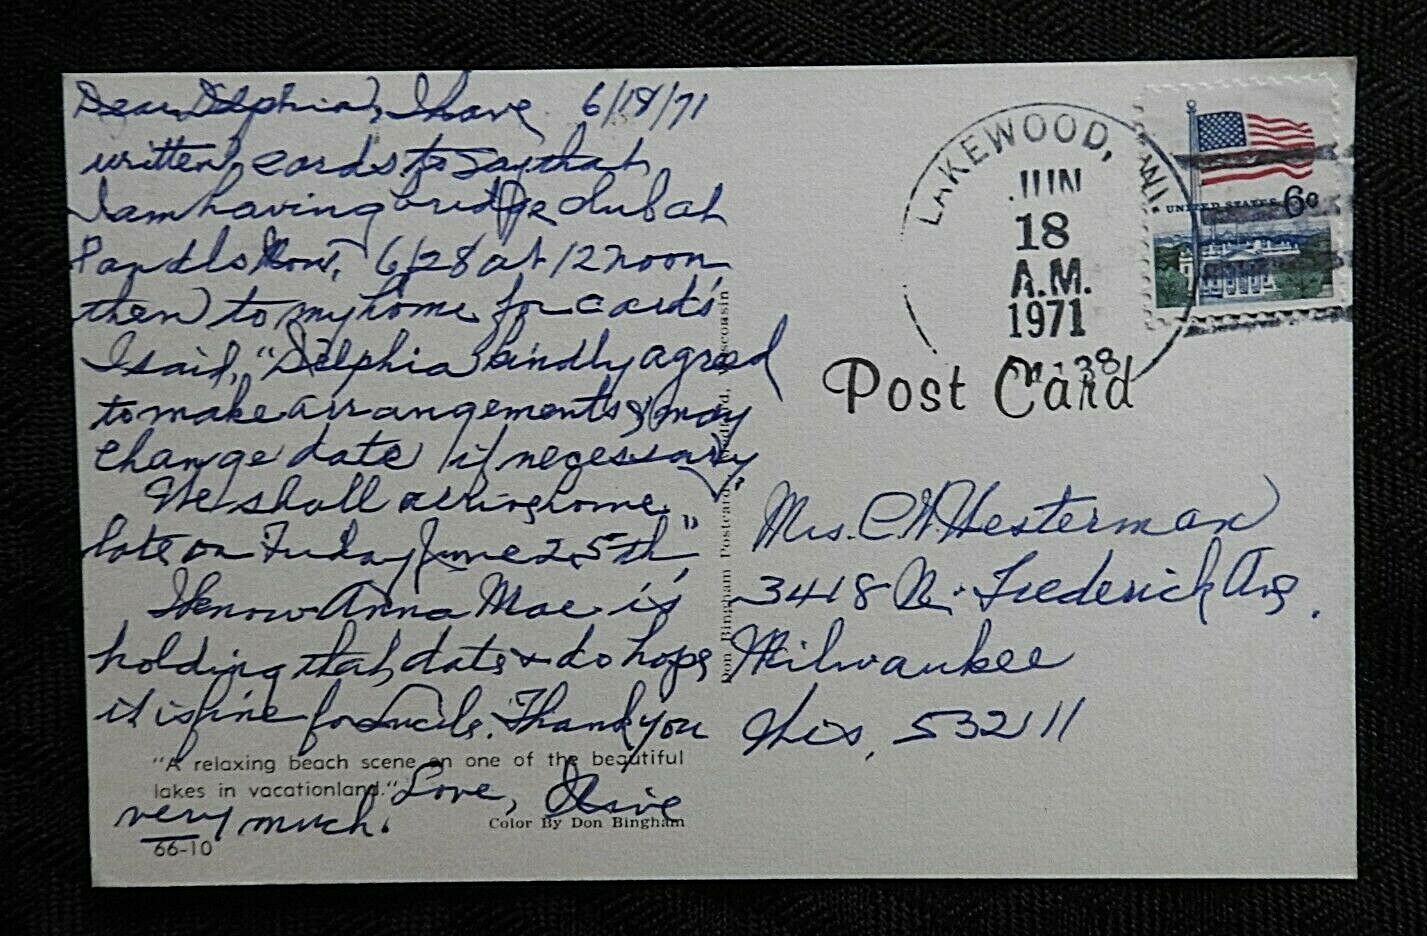 Dear Delphia, I have 6/18/71
written cards to say that
I am having bridge club at
Mon. 6/28 at 12 noon
then to my home for cards.
I said, "Delphia kindly agreed
to make arrangements & may
change date if necessary"
We shall arrive home
late on Friday June 25th"
I know Anna Mae is
holding that date & do hope
it is fine for Lucile. Thank you
"A relaxing beach scene on one of the beautiful
lakes in vacationland."
very much. Love, Olive
Color By Don Bingham
66-10
Don Bingham Postcard, Wisconsin
LAKEWOOD, WI.
JUN
18
A.M.
1971
UNITED STATES 6c
Post Card
Mrs. C W Hesterman
3418 N. Frederick Ave.
Milwaukee
Wis, 53211